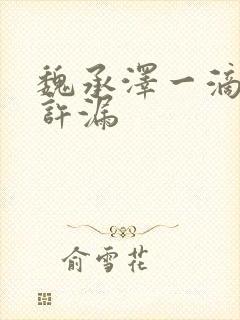 魏承澤一滴
許漏
俞雪花